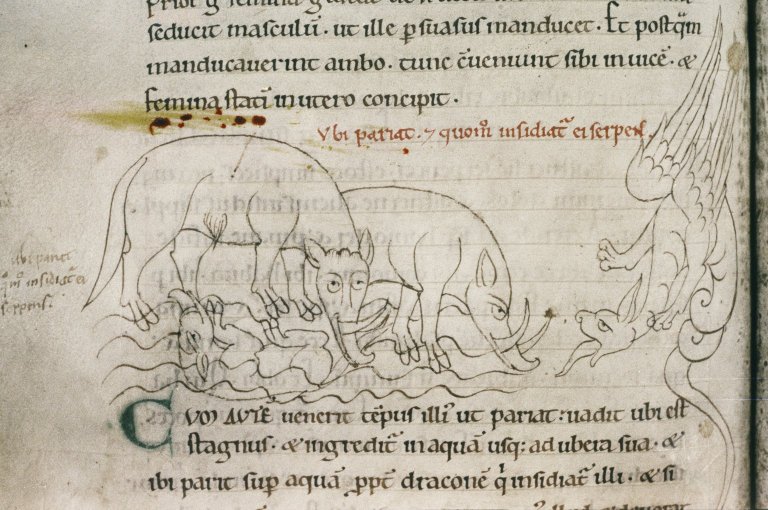 seducit masculū. ut ille ꝑsuasus manducet. Et postq̄m
manducauerint ambo. tunc ꝯueniunt sibi inuicē. &
femina stati in utero concipit.
Vbi pariat. ⁊ quom̄ insidiat̄ ei serpens.
ubi pariet
insidiat̄ ei
serpens.
CVM AVTĒ uenerit tēpus illi' ut pariat: uadit ubi est
stagnus. & ingredit̄ in aquā usq: ad ubera sua. &
ibi parit sup aquā ꝓpt̄ draconē q' insidiat̄ illi. & si